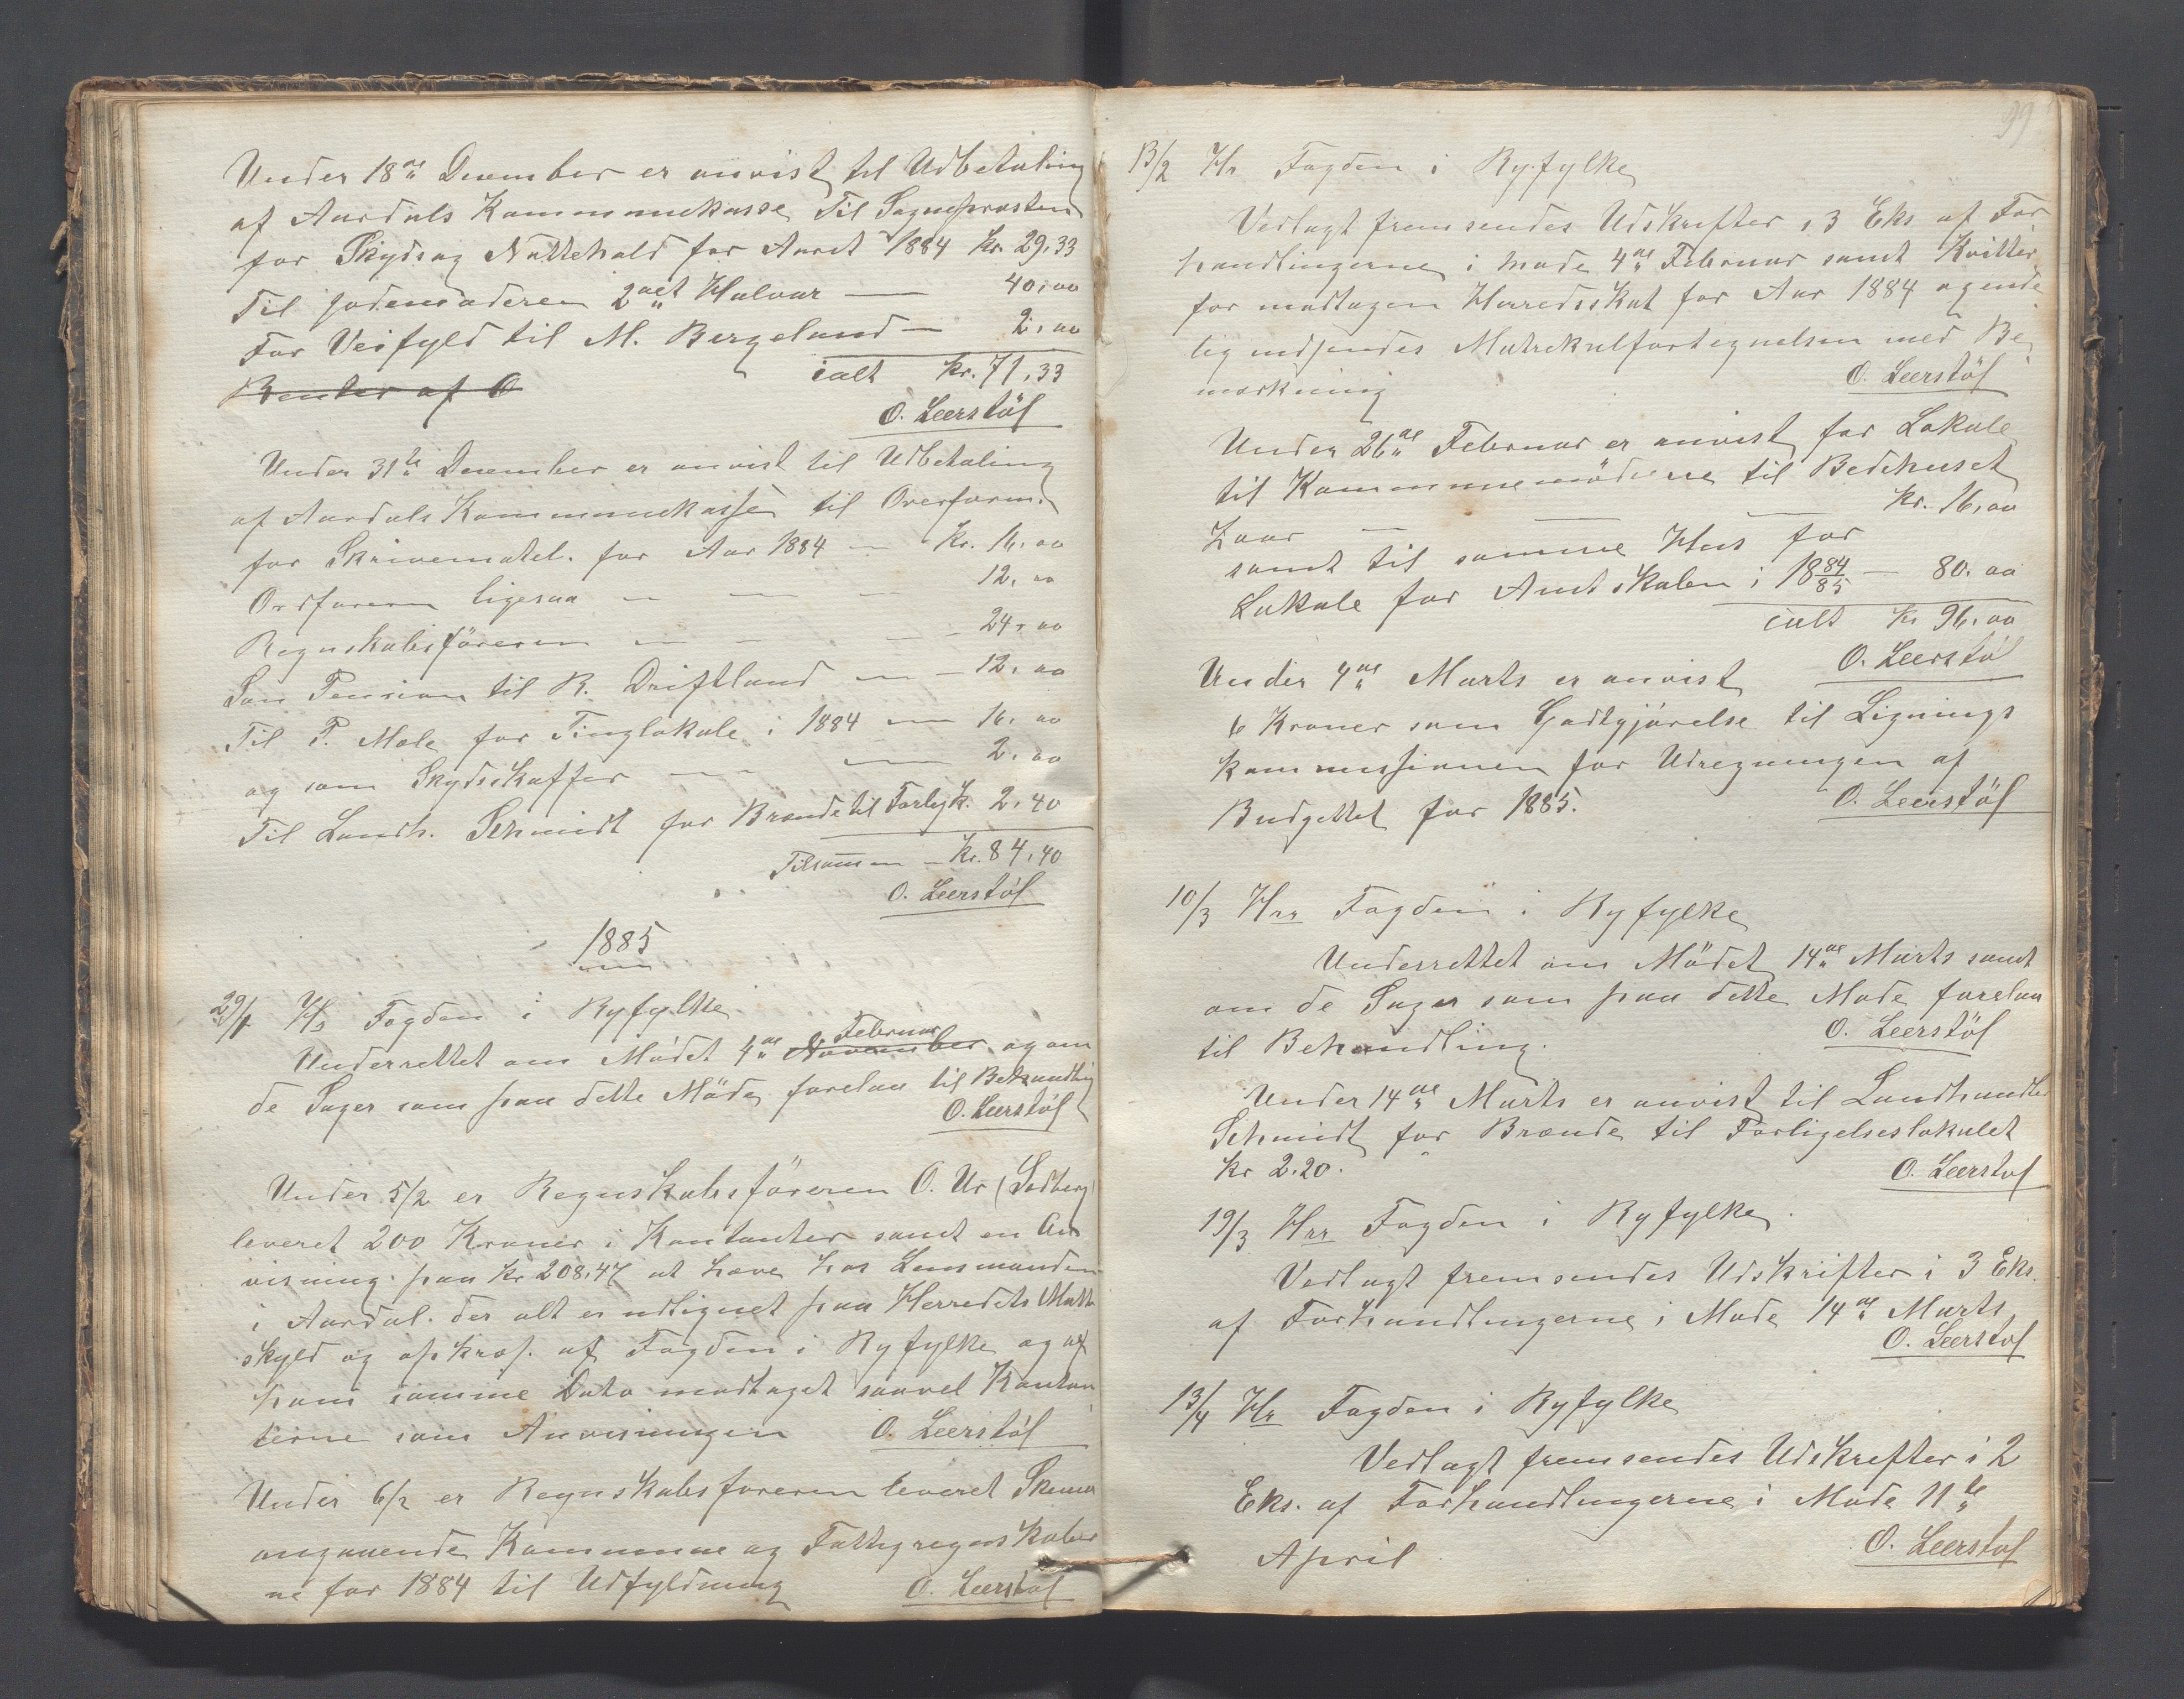 Under 18de December er anvist til Udbetaling
af Aardals Kommunekasse Til Sogneprosten
for Skyds og Nattehold for Aaret 1884 Kr. 29,33
Til Jodemoderen 2det Halvaar — 40,00
For Veifyld til M. Bergeland — 2,00
ialt Kr. 71,33
Renter af O
O. Leerstöl
Under 31te December er anvist til Udbetaling
af Aardals Kommunekasse til Overform.
for Skrivematel. for Aar 1884 — Kr. 16,00
Ordføreren ligesaa — — — 12,00
Regnskabsföreren — — — 24,00
Som Pension til R. Driftland — — 12,00
Til P. Mæle for Tinglokale i 1884 — 16,00
og som Skydsskaffer — — 2,00
Til Landh. Schmidt for Brænde til Forlig.k. 2,40
Tilsammen — Kr. 84,40
O. Leerstöl
1885
29/1 Hr Fogden i Ryfylke
Februar
Underrettet om Mödet 4de November og om
de Sager som paa dette Möde forelaa til Behandling
O. Leerstöl
Under 5/2 er Regnskabsföreren O. Ur (Sedberg)
leveret 200 Kroner i Kontanter samt en An
visning paa Kr 208,47 at hæve hos Lensmanden
i Aardal. der alt er udlignet paa Herredets Matr.
skyld og opkræv. af Fogden i Ryfylke og af
ham samme Dato modtaget saavel Kontan
terne som Anvisningen O. Leerstöl
Under 6/2 er Regnskabsföreren leveret Skema
angaaende Kommune og Fattigregnskaber
ne for 1884 til Udfyldning O. Leerstöl
99
13/2 Hr Fogden i Ryfylke
Vedlagt fremsendes Udskrifter i 3 Eks af For
handlingerne i Möde 4de Februar samt Kvitter.
for modtagen Herredsskat for Aar 1884 og ende
lig indsendes Matrikulfortegnelsen med Be
mærkning
O. Leerstöl
Under 26de Februar er anvist for Lokale
til Kommunemöderne til Bedehuset
Kr. 16,00
2 aar — — —
samt til samme Hus for
Lokale for Amtskolen i 1884/85 — 80,00
ialt Kr 96,00
O. Leerstöl
Under 4de Marts er anvist
6 Kroner som Godtgjörelse til Lignings
kommissionen for Udregningen af
Budgettet for 1885.
O. Leerstöl
10/3 Hrr Fogden i Ryfylke
Underrettet om Mödet 14de Marts samt
om de Sager som paa dette Möde forelaa
til Behandling.
O. Leerstöl
Under 14de Marts er anvist til Landhandler
Schmidt for Brænde til Forligelseslokalet
Kr 2.20.
O. Leerstöl
19/3 Hrr Fogden i Ryfylke
Vedlagt fremsendes Udskrifter i 3 Eks.
af Forhandlingerne i Möde 14de Marts
O. Leerstöl
13/4 Hr Fogden i Ryfylke
Vedlagt fremsendes Udskrifter i 2
Eks. af Forhandlingerne i Möde 11te
April
O. Leerstöl